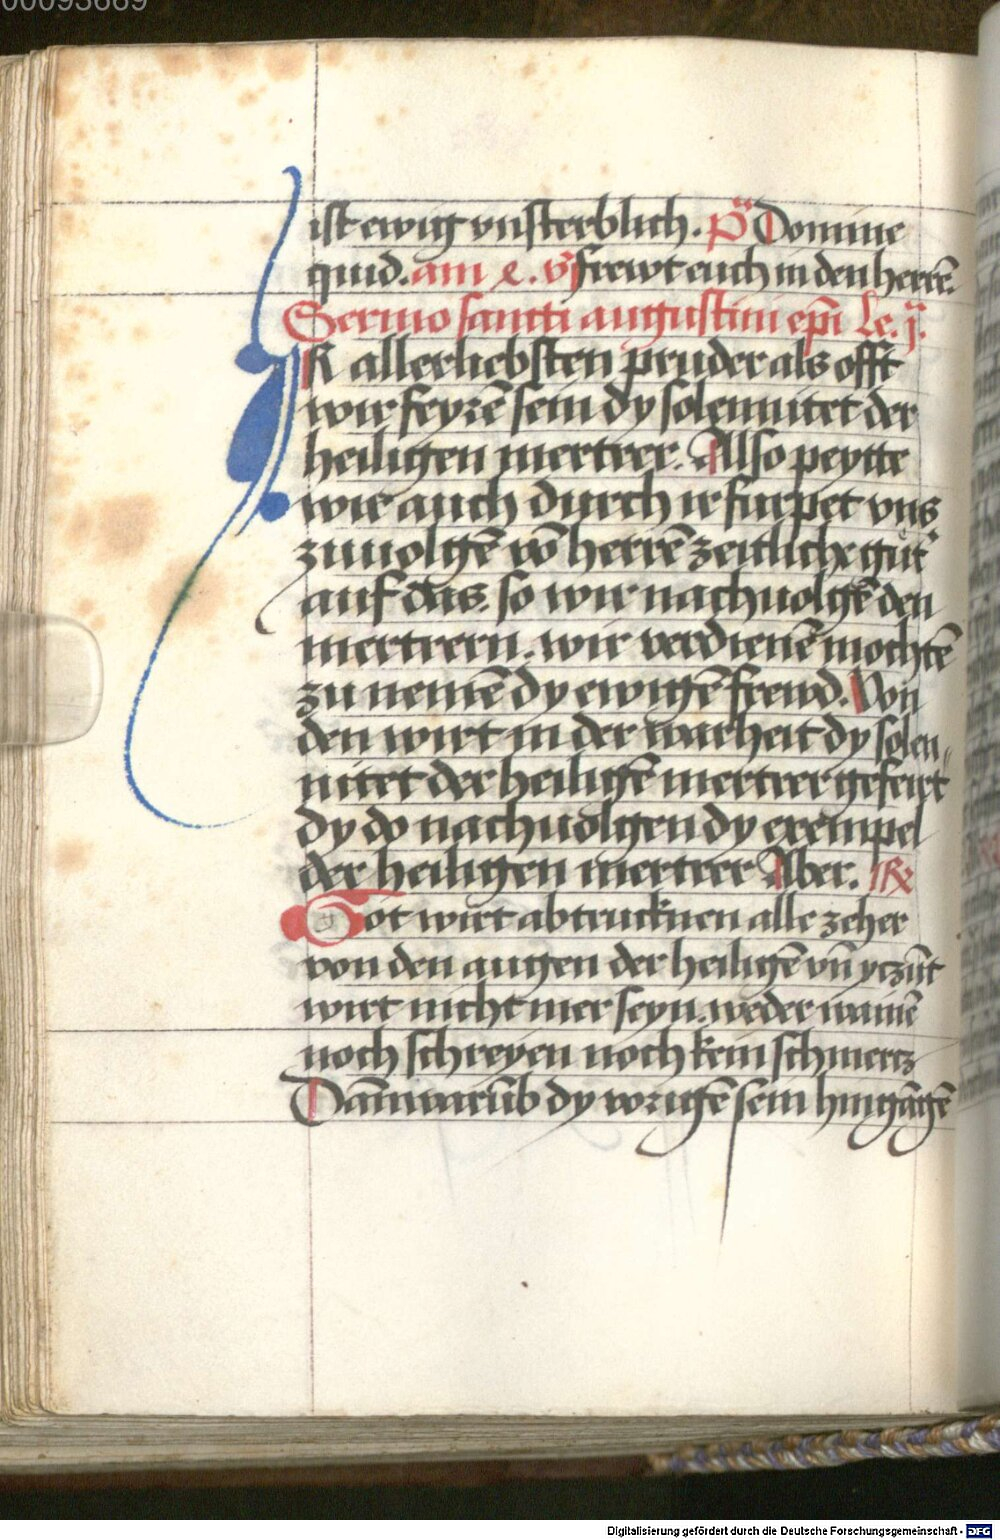 00093669
ist ewig vnsterblich. Domine
quid. am e. frewt euch in den herrē.
Sermo sancti augustini epi Le. j.
IR allerliebsten pruder als offt
wir feyrē sein dy solennitet der
heiligen mertrer. Also peytte
wir auch durch ir furpet vns
zuuolgē vō herrē zeitliche gut
auf das. so wir nachuolgē den
mertrern. wir verdienē mochtē
zu nemē dy ewigē frewd. Von
den wirt in der warheit dy solen„
nitet der heiligē mertrer gefeirt
dy do nachuolgen dy exempel
der heiligen mertrer Aber. R
Got wirt abtrucknen alle zeher
von den augen der heiligē vn̄ yczūt
wirt nicht mer seyn. weder wainē
noch schreyen noch kein schmercz
Dān̄warūb dy vorigē sein hingāgē
Digitalisierung gefördert durch die Deutsche Forschungsgemeinschaft - DFG